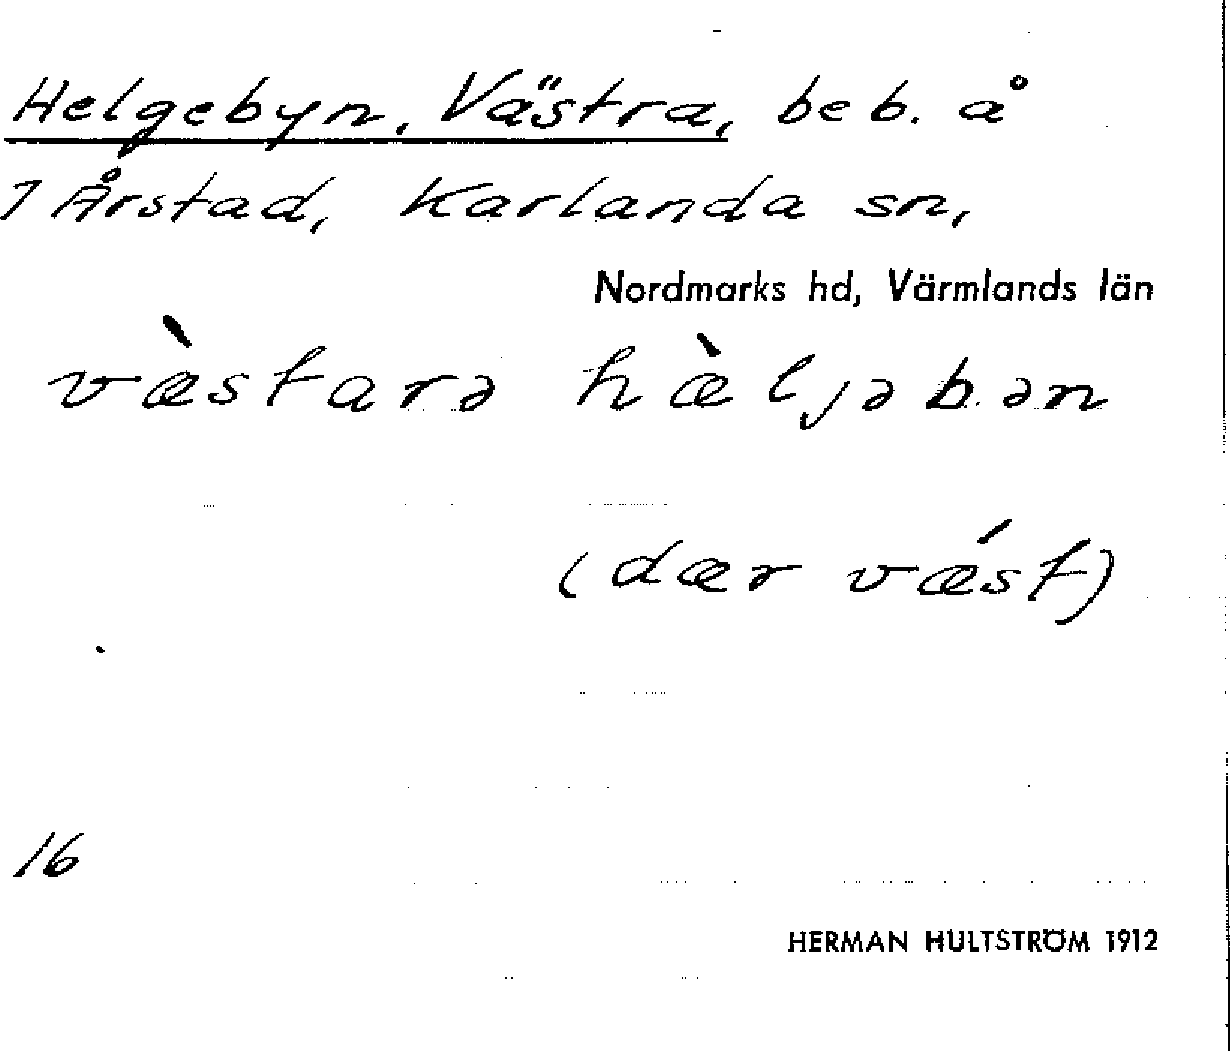 Helgebyn, Västra, beb. å
7 Årstad, Karlanda sn,
Nordmarks hd, Värmlands län
væ̀starə hæ̀ljəbən
(dær vǽst)
16
HERMAN HULTSTRÖM 1912